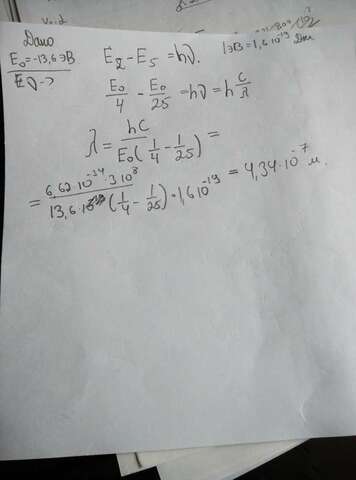 Дано
E₀=-13,6 эВ
E₂-E₅=hν.
1эВ=1,6·10⁻¹⁹ Дж
E₀/4 - E₀/25 = hν = h c/λ
λ = hc / E₀(1/4 - 1/25) =
= 6,62·10⁻³⁴·3·10⁸ / 13,6 (1/4 - 1/25)·1,6 10⁻¹⁹ = 4,34·10⁻⁷ м.